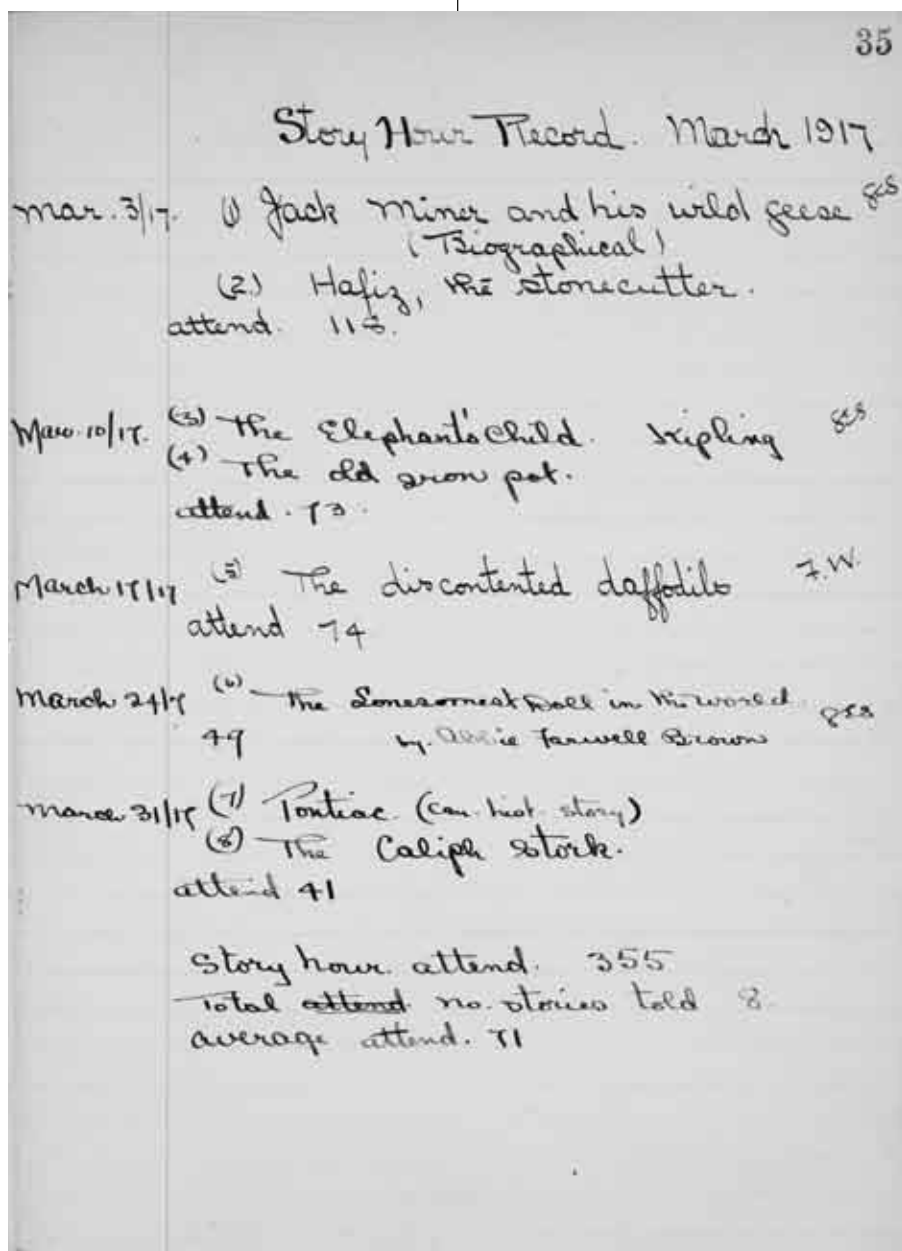 35
Story Hour Record. March 1917
Mar. 3/17. (1) Jack Miner and his wild geese
(Biographical)
(2) Hafiz, the stonecutter.
attend. 118.
Mar. 10/17. (3) The Elephant's Child. Kipling
(4) The old iron pot.
attend. 73.
March 17/17 (5) The discontented daffodils F.W.
attend 74
March 24/17 (6) The Lonesomest Doll in the world
49 by. Abbie Farwell Brown
March 31/17 (7) Pontiac. (Can. hist. story)
(8) The Caliph Stork.
attend 41
Story hour. attend. 355
Total attend no. stories told 8
average attend. 71